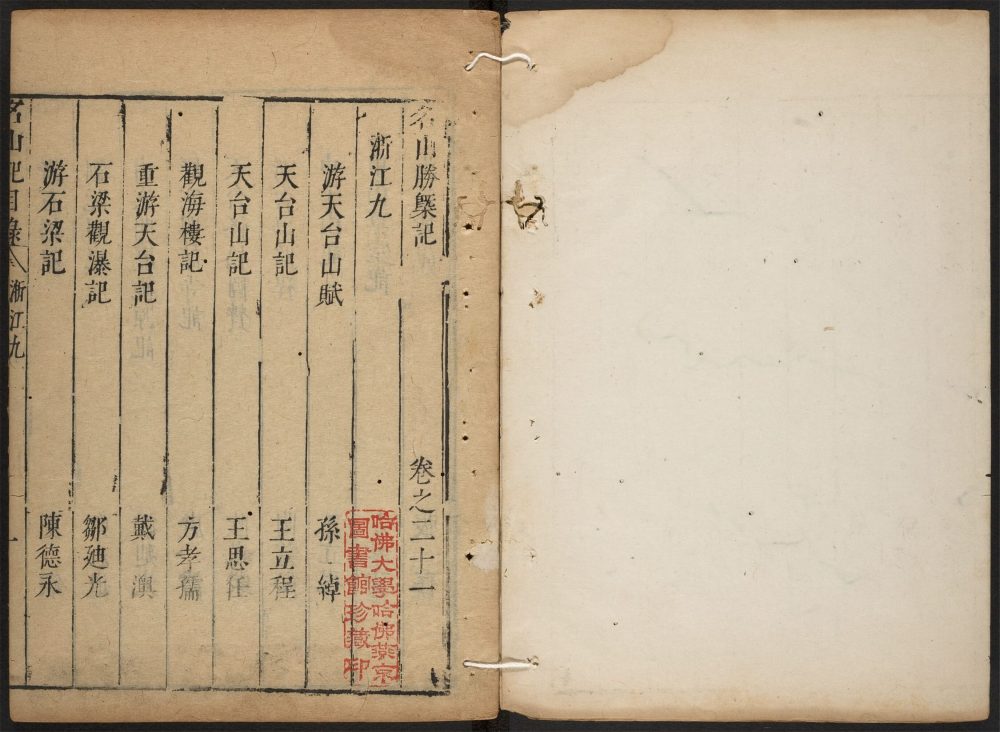 名山勝槩記 卷之二十一
浙江九
游天台山賦 孫綽
天台山記 王立程
天台山記 王思任
觀海樓記 方孝孺
重游天台記 戴澳
石梁觀瀑記 鄒廸光
游石梁記 陳德永
名山記目錄 浙江九 一
哈佛大學哈佛燕京
圖書館珍藏印